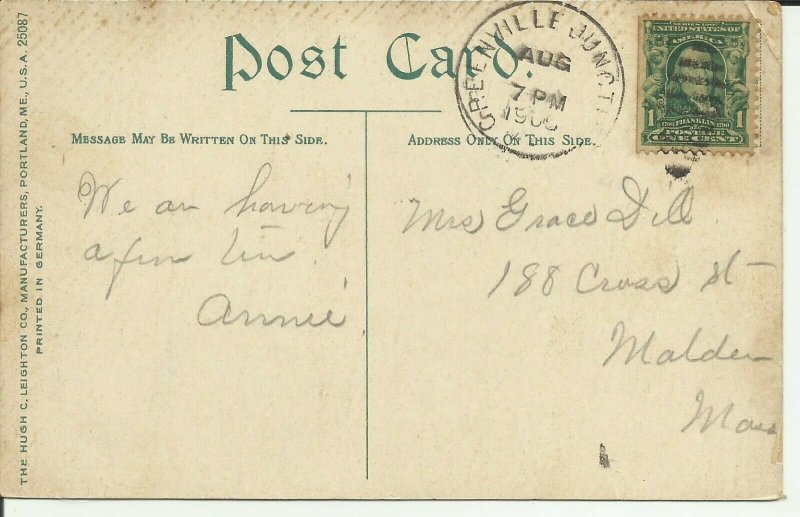 Post Card.
GREENVILLE JUNCT
AUG
7 PM
SERIES 1902
UNITED STATES OF
AMERICA
1 FRANKLIN 1
POSTAGE
ONE CENT
MESSAGE MAY BE WRITTEN ON THIS SIDE.
ADDRESS ONLY ON THIS SIDE.
We are having
a fine time
Annie
Mrs Grace Dill
188 Cross St
Malden
Mass
THE HUGH C. LEIGHTON CO., MANUFACTURERS, PORTLAND, ME., U.S.A. 25087
PRINTED IN GERMANY.